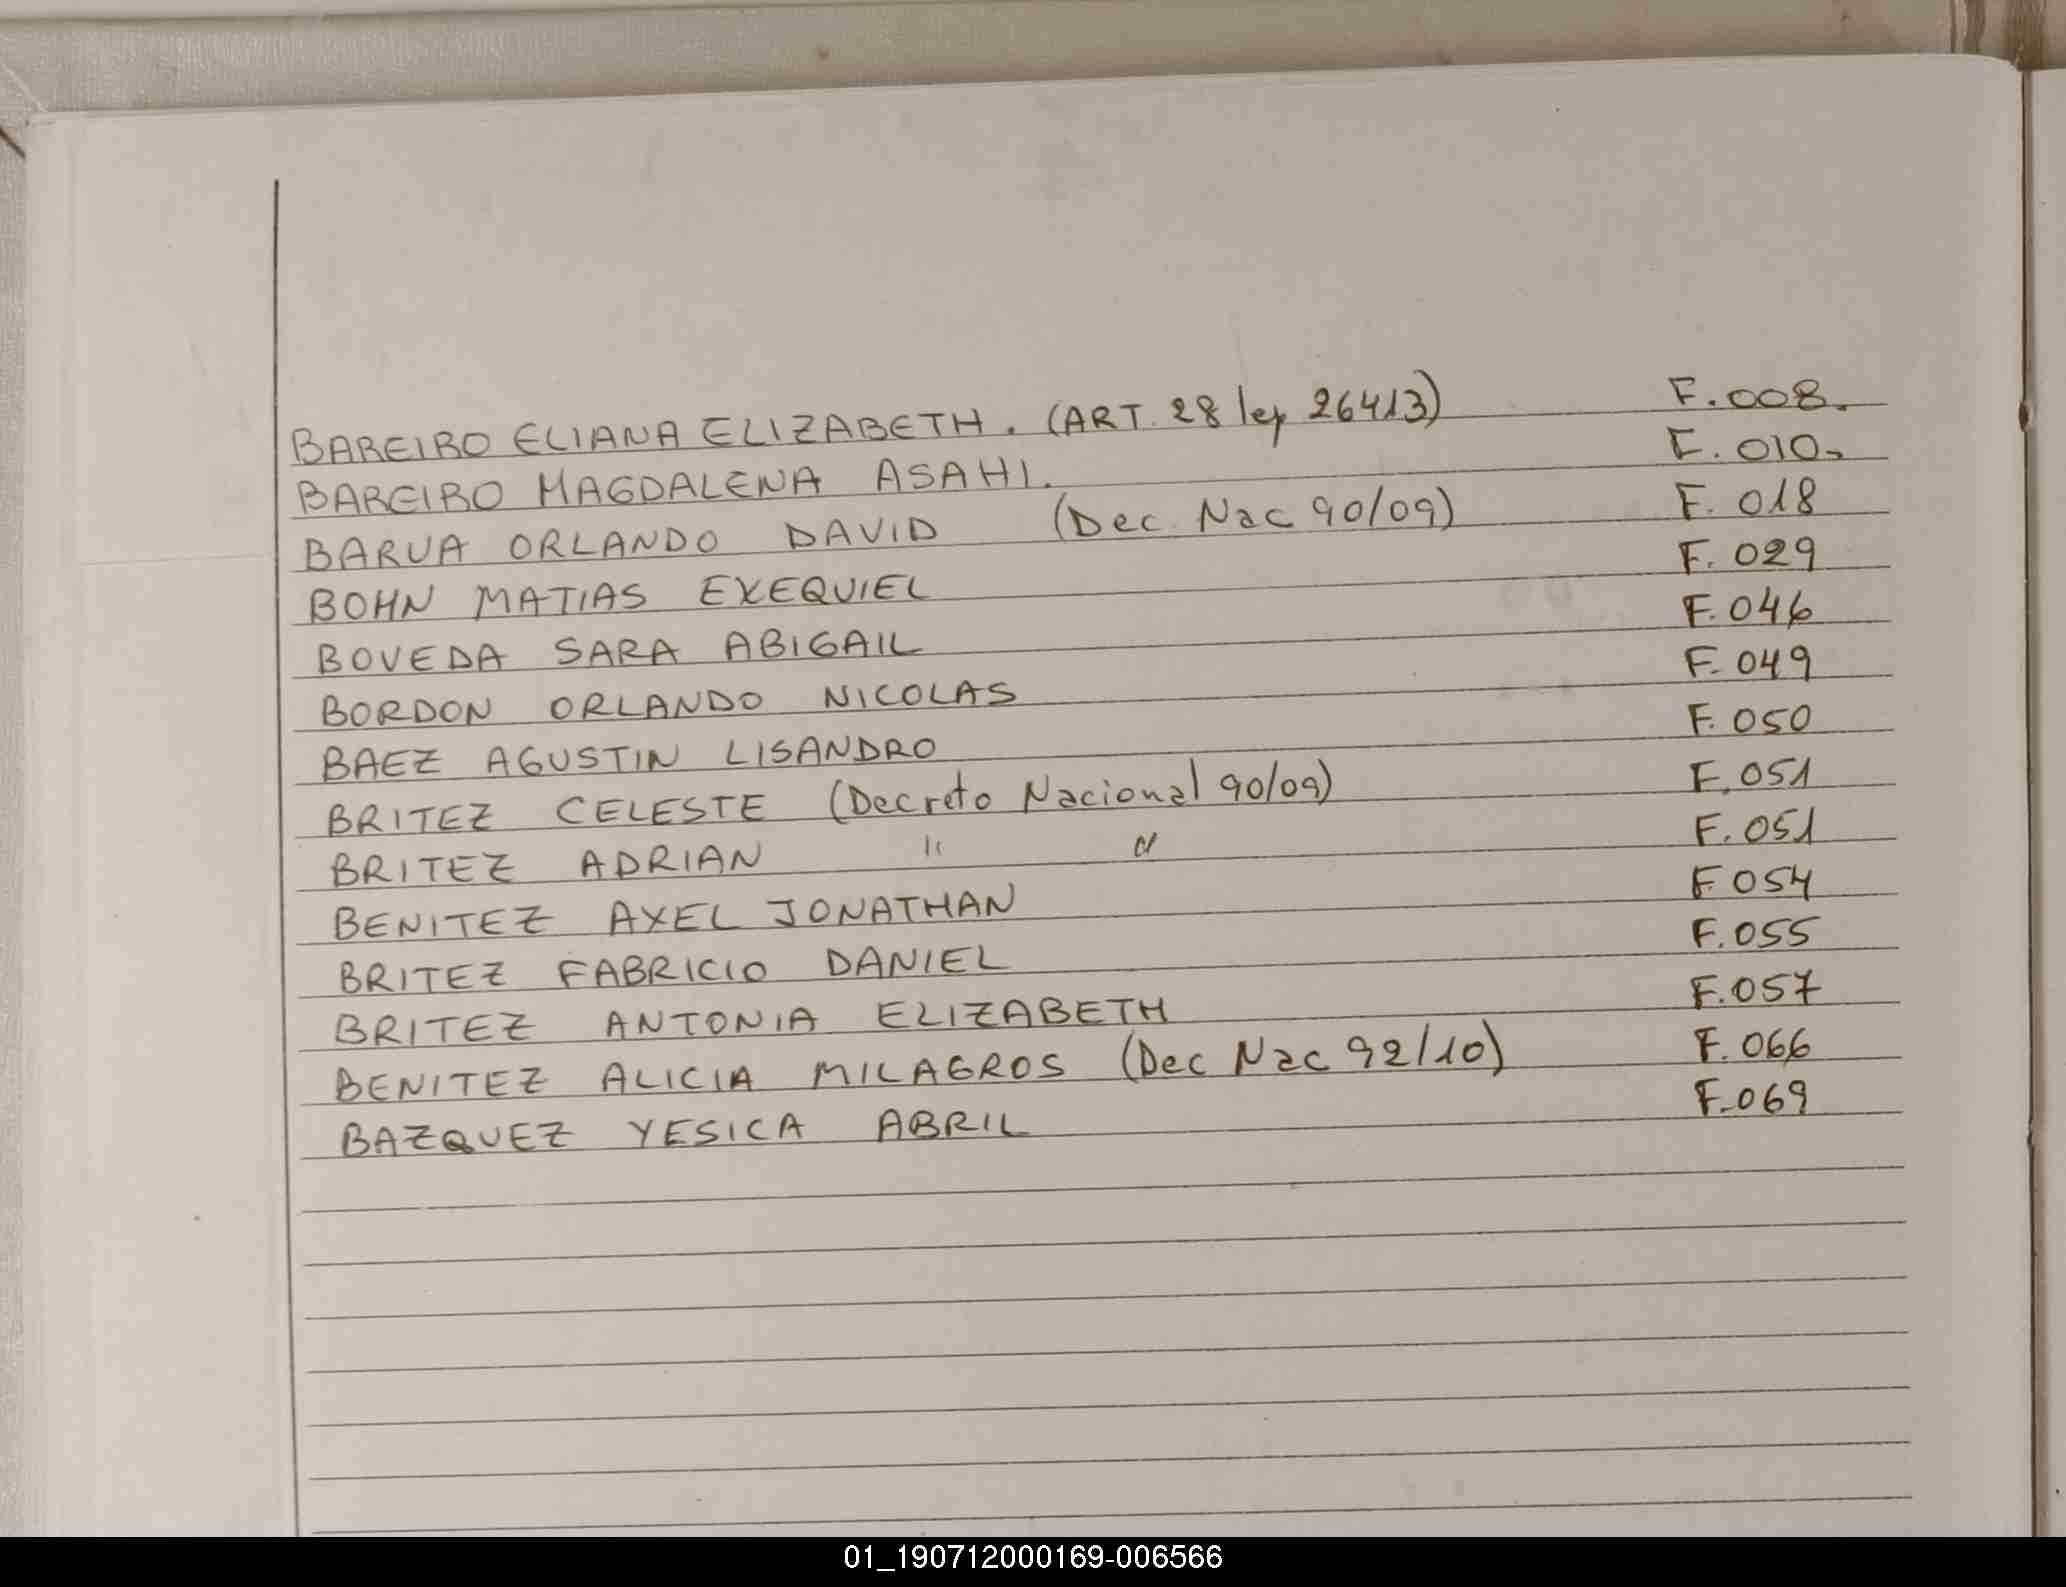 BAREIRO ELIANA ELIZABETH. (ART. 28 ley 26413) F.008.
BAREIRO MAGDALENA ASAHI. F.010.
BARUA ORLANDO DAVID (Dec Nac 90/09) F.018
BOHN MATIAS EXEQUIEL F.029
BOVEDA SARA ABIGAIL F.046
BORDON ORLANDO NICOLAS F.049
BAEZ AGUSTIN LISANDRO F.050
BRITEZ CELESTE (Decreto Nacional 90/09) F.051
BRITEZ ADRIAN " " F.051
BENITEZ AXEL JONATHAN F.054
BRITEZ FABRICIO DANIEL F.055
BRITEZ ANTONIA ELIZABETH F.057
BENITEZ ALICIA MILAGROS (Dec Nac 92/10) F.066
BAZQUEZ YESICA ABRIL F.069
01_190712000169-006566